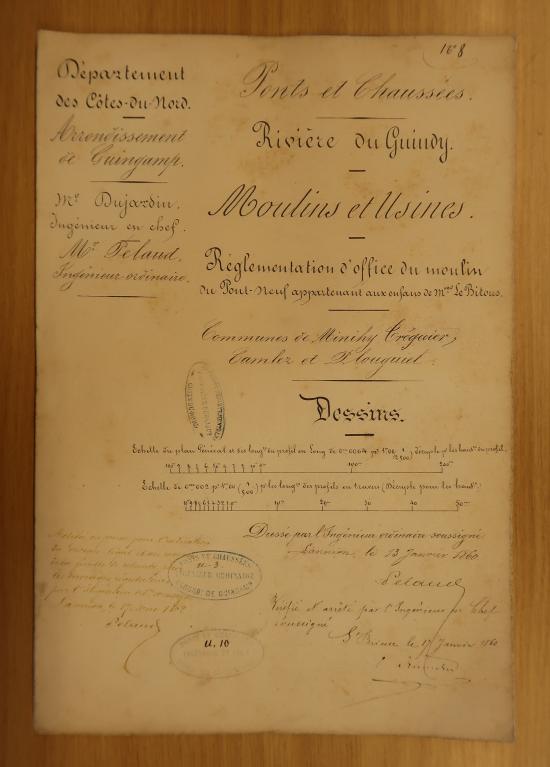 108
Département
des Côtes-du-Nord.
Arrondissement
de Guingamp.
Mr Dujardin,
Ingénieur en chef.
Mr Pelaud,
Ingénieur ordinaire.
Ponts et Chaussées.
Rivière du Guindy.
Moulins et Usines.
Réglementation d'office du moulin
du Pont-Neuf appartenant aux enfans de Mme Le Bitous.
Communes de Minihy Tréguier,
Camlez et Plouguiel.
Dessins.
Echelle du plan Général et des longrs du profil en long de 0m0004 pr 1m00 (1/2500) décuple pr les hautrs du profil.
100 200
Echelle de 0m002 pr 1m00 (1/500) pr les longrs des profils en travers (Décuple pour les hautrs)
10 20 30 40 50
Dressé par l'Ingénieur ordinaire soussigné
Lannion, le 13 Janvier 1860
Pelaud
Vérifié et arrêté par l'Ingénieur en Chef
soussigné
St Brieuc le 17 Janvier 1860
PONTS ET CHAUSSÉES
n-3
INGÉNIEUR ORDINAIRE
ARROND. DE GUINGAMP
Pelaud
U. 10